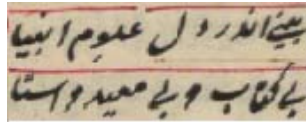 بینی اندر دل علوم انبیا
بی کتاب و بی معید و اوستا